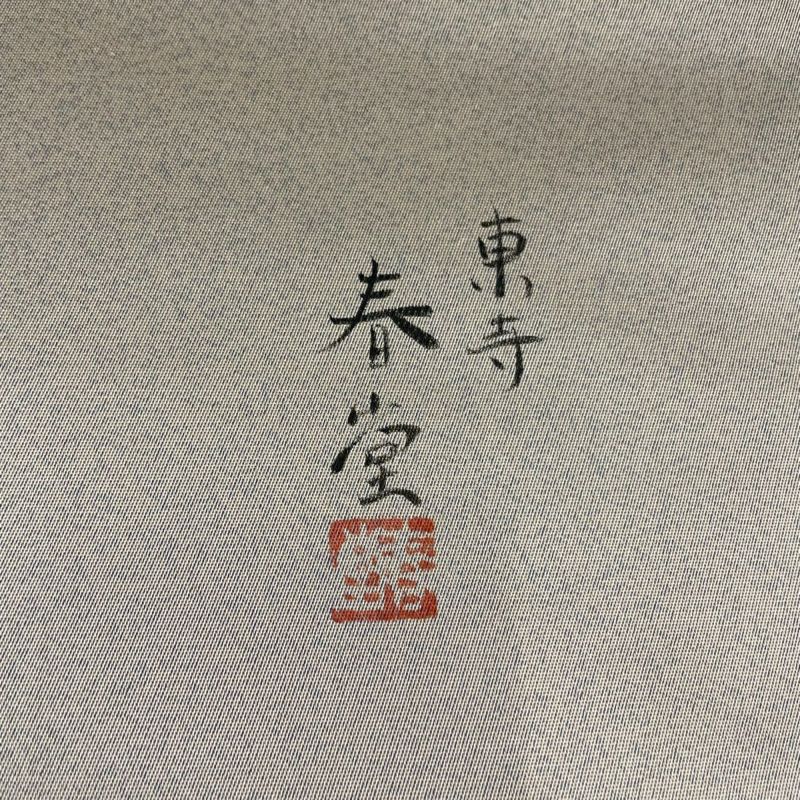 東寺
春堂